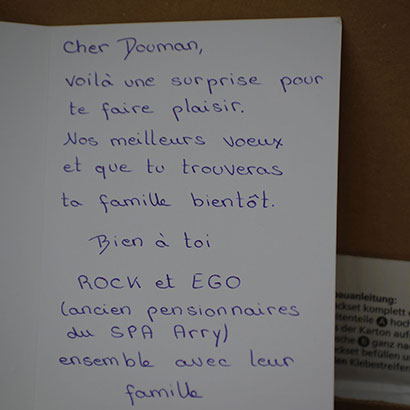 Cher Douman,
voilà une surprise pour
te faire plaisir.
Nos meilleurs voeux
et que tu trouveras
ta famille bientôt.
Bien à toi
ROCK et EGO
(ancien pensionnaires
du SPA Arry)
ensemble avec leur
famille
bauanleitung:
komplett
tenteile A hoch
der Karton auf
B ganz na
befüllen u
en Klebestreifen